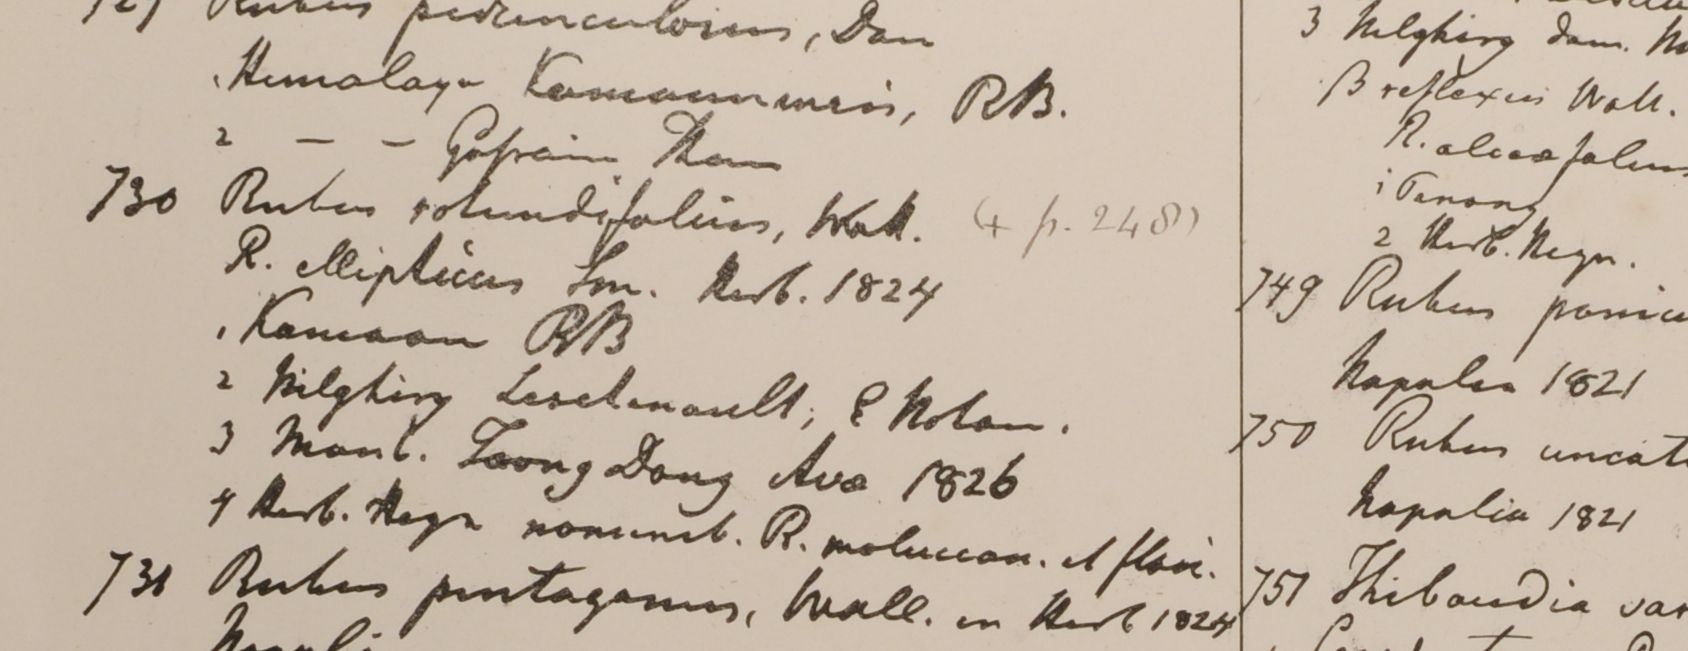 729 Rubus pedunculosus, Don
1 Himalaya Kamaonensis, RB.
2 — — Gosain Than
730 Rubus rotundifolius, Wall. (+ p. 248)
R. ellipticus Sm. Herb. 1824
1 Kamaon RB
2 Nilghiry Leschenault, & Noton.
3 Mont. Toong Dong Ava 1826
4 Herb. Heyn nomincb. R. moluccan. et flav.
731 Rubus pentagonus, Wall. in Herb 1824
Napali
3 Nilghiry dom.
β reflexus Wall.
R. alceaefolius
1 Penang
2 Herb. Heyn.
749 Rubus panicu
Napalia 1821
750 Rubus uncat
Napalia 1821
751 Thibaudia var